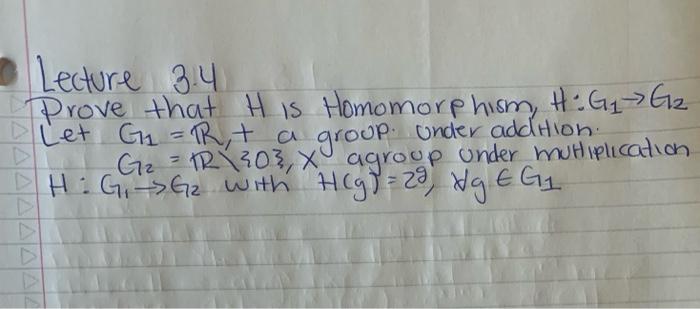 Lecture 3.4
Prove that H is Homomorphism, H: G₁→G₂
Let G₁ = ℝ, + a group. under addition.
G₂ = ℝ\{0}, X a group under multiplication
H: G₁→G₂ with H(g) = 2ᵍ, ∀g ∈ G₁